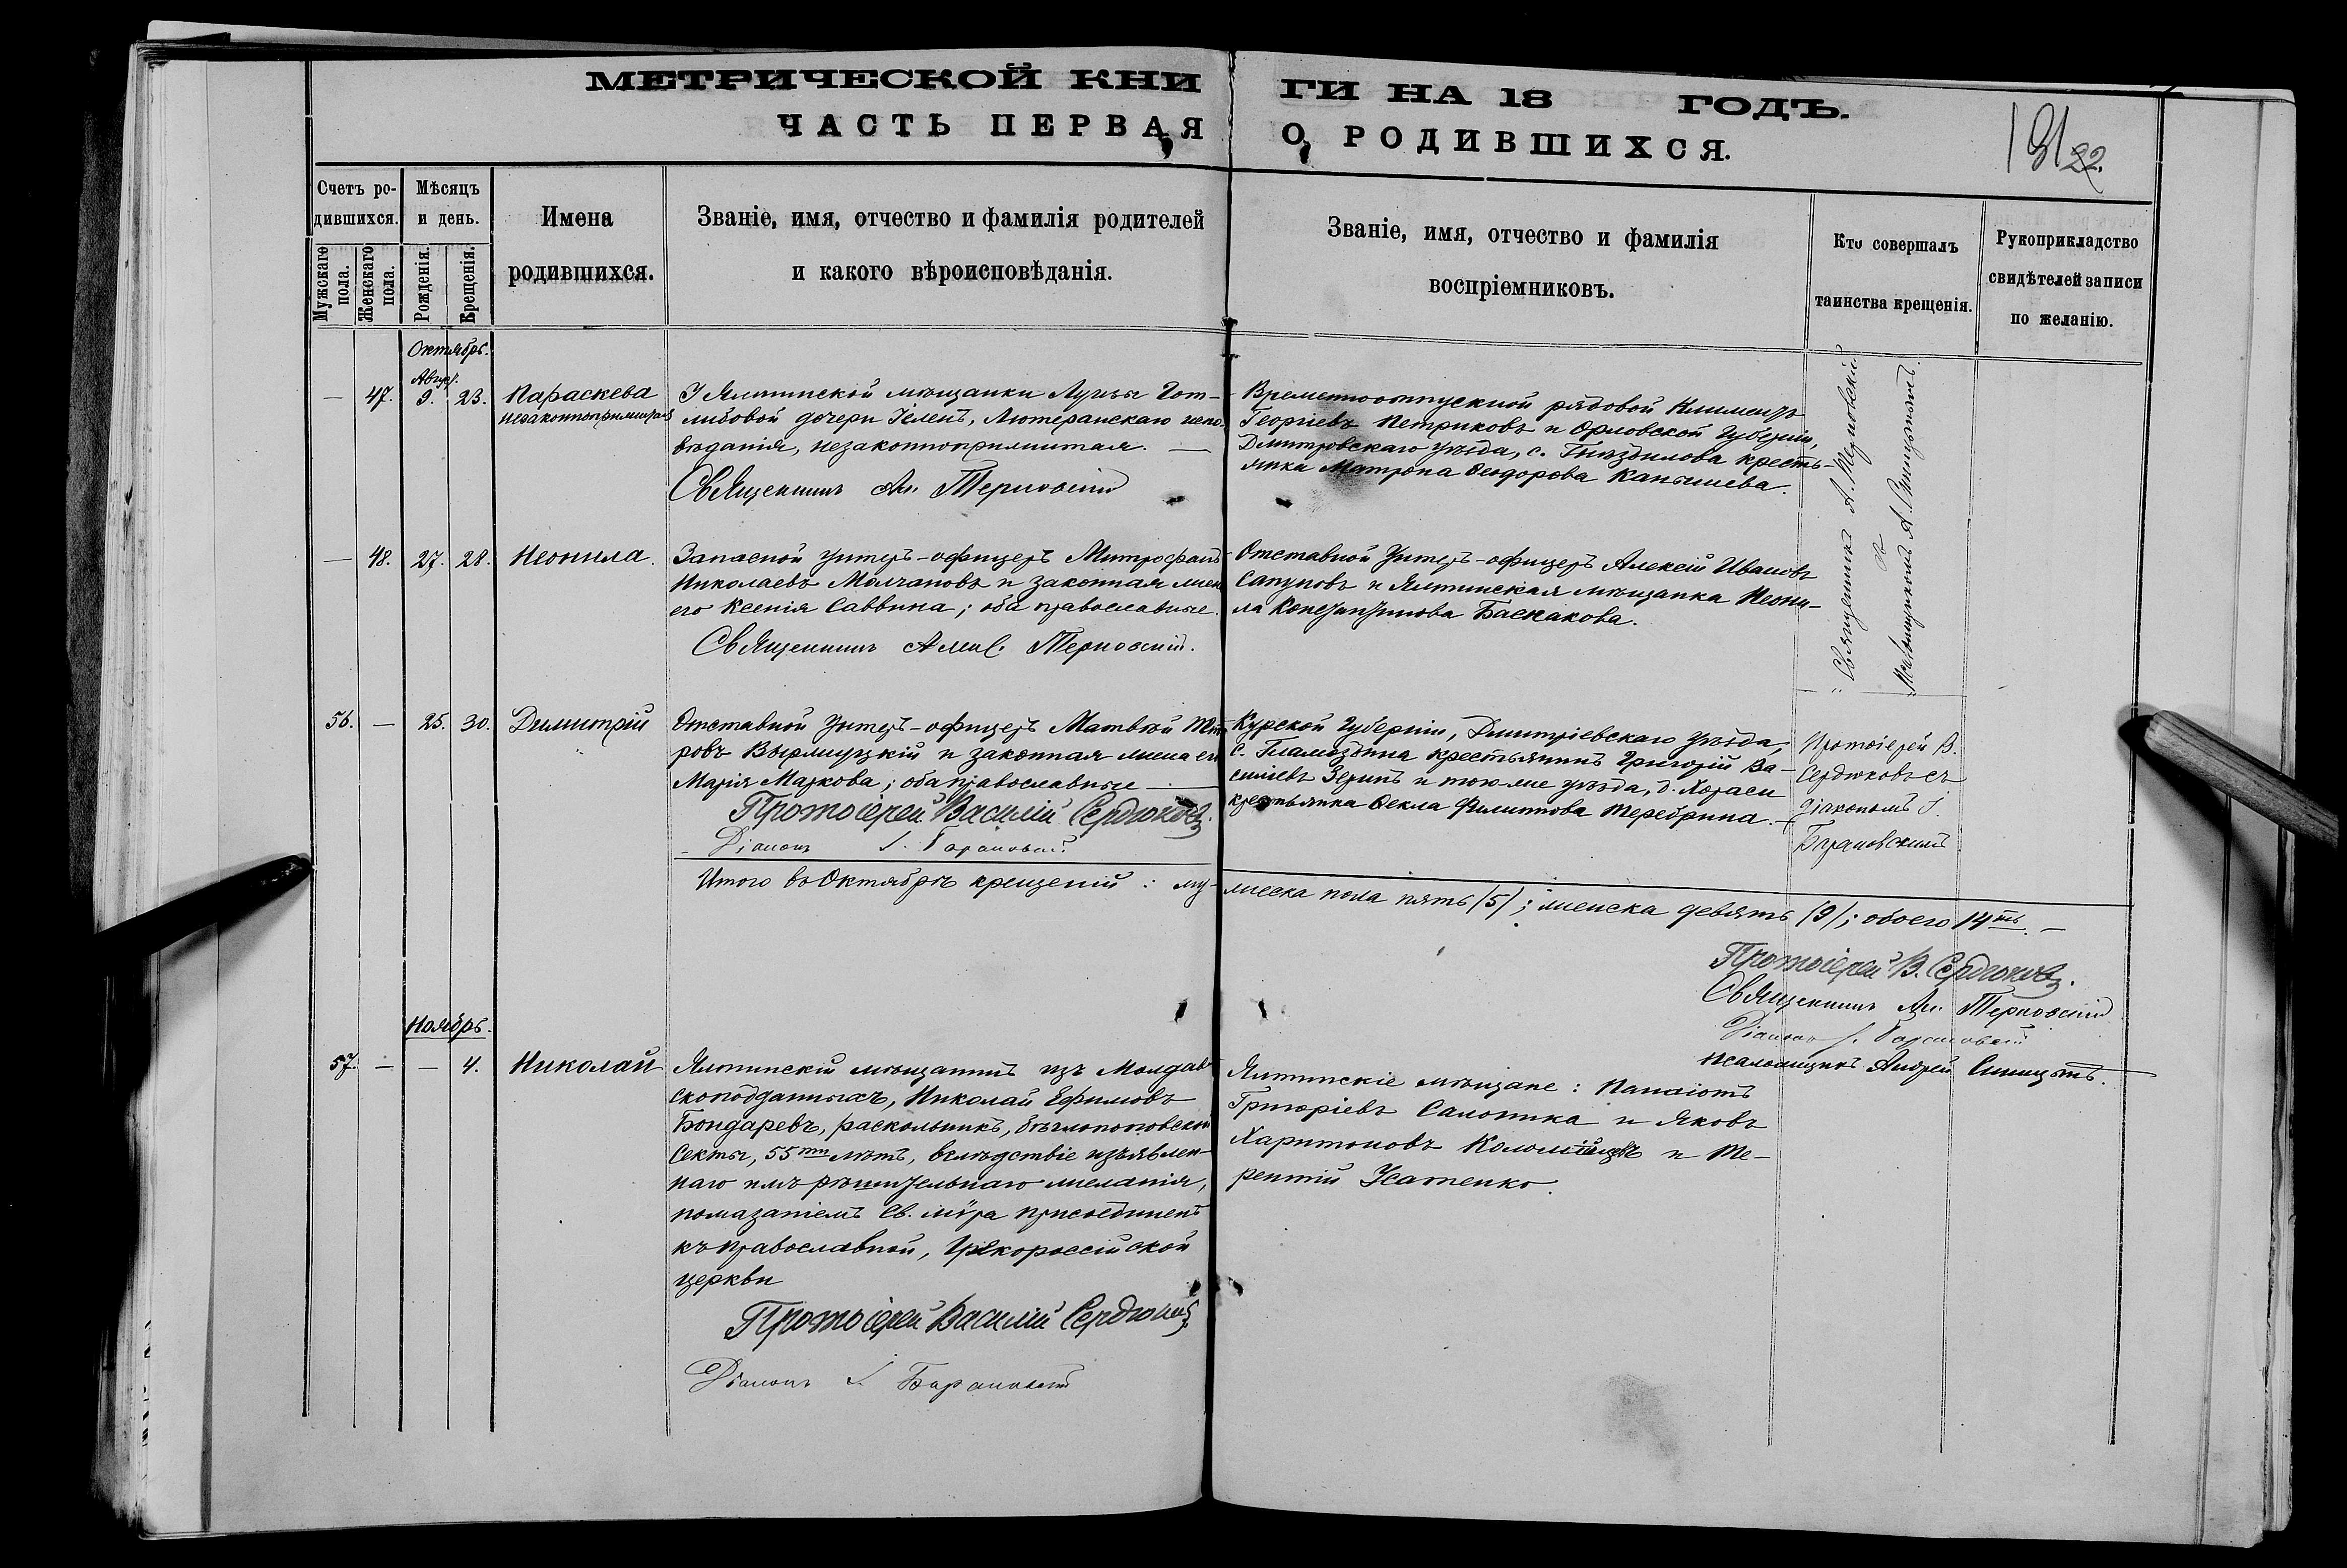 МЕТРИЧЕСКОЙ КНИГИ НА 18 ГОДЪ.
ЧАСТЬ ПЕРВАЯ, О РОДИВШИХСЯ.
22.
Счетъ ро-
дившихся.
Мужскаго пола.
Женскаго пола.
Мѣсяцъ
и день.
Рожденія.
Крещенія.
Имена
родившихся.
Званіе, имя, отчество и фамилія родителей
и какого вѣроисповѣданія.
Званіе, имя, отчество и фамилія
воспріемниковъ.
Кто совершалъ
таинства крещенія.
Рукоприкладство
свидѣтелей записи
по желанію.
Октябрь.
Авгус.
— 47. 9. 23. Параскева
незаконноприжитая
У Ялтинской мѣщанки Луизы Гот-
либовой дочери Лютеранскаго испо-
вѣданія, незаконноприжитая. —
Священникъ Ал. Терновскій
Временноотпускной рядовой Климентъ
Георгіевъ Петриковъ и Орловской Губерніи,
Дмитровскаго уѣзда, с. Гнѣздилова кресть-
янка Матрона Ѳеодорова Капышева.
Священникъ А. Терновскій
съ
Псаломщикомъ А. Синицынымъ.
— 48. 27. 28. Неонила.
Запасной унтеръ-офицеръ Митрофанъ
Николаевъ Молчановъ и законная жена
его Ксенія Саввина; оба православные.
Священникъ Алекс. Терновскій.
Отставной Унтеръ-офицеръ Алексій Ивановъ
Сапуновъ и Ялтинская мѣщанка Неони-
ла Константинова Баскакова.
56. — 25. 30. Димитрій
Отставной унтеръ-офицеръ Матвѣй Пет-
ровъ и законная жена его
Марія Маркова; оба православные —
Протоіерей Василій Сердюковъ.
Діаконъ І. Барановскій
Курской Губерніи, Дмитріевскаго уѣзда,
с. Гламаздина крестьянинъ Григорій Ва-
силіевъ и того-же уѣзда, д.
крестьянка Ѳекла Филиппова Теребрина. —
Протоіерей В.
Сердюковъ съ
діакономъ І.
Барановскимъ
Итого въ Октябрѣ крещеній: му-жеска пола пять /5/; женска девять /9/; обоего 14ть. —
Протоіерей В. Сердюковъ.
Священникъ Ал. Терновскій
Діаконъ І. Барановскій
Псаломщикъ Андрей Синицынъ.
Ноябрь.
57. — — 4. Николай
Ялтинскій мѣщанинъ изъ Молдав-
скоподданныхъ, Николай Ефимовъ
Бондаревъ, раскольникъ, бѣглопоповской
секты, 55ти лѣтъ, вслѣдствіе изъявлен-
наго имъ рѣшительнаго желанія,
помазаніемъ Св. мѵра присоединенъ
къ православной, Грекороссійской
церкви
Протоіерей Василій Сердюковъ
Діаконъ І. Барановскій
Ялтинскіе мѣщане: Панаіотъ
Григоріевъ Салотика и Яковъ
Харитоновъ Коломійцевъ и Те-
рентій Усатенко.